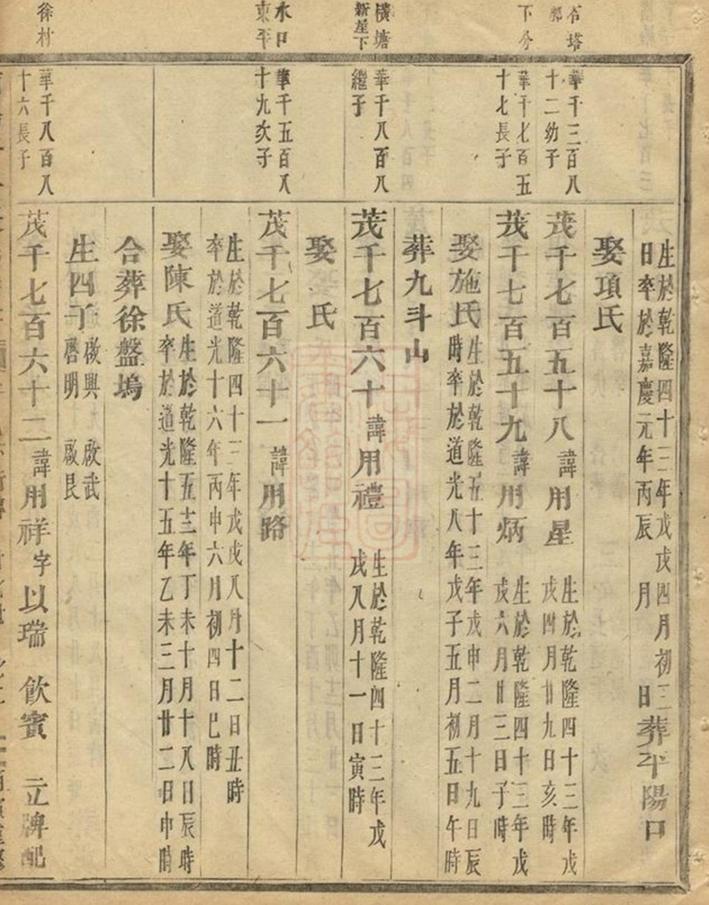 生於乾隆四十三年戊戌四月初三
日卒於嘉慶元年丙辰 月 日葬平陽口
娶項氏
石塔
郭
華千三百八
十二幼子
茂千七百五十八 諱用星
生於乾隆四十三年戊
戌四月廿九日亥時
下今
華千七百五
十七長子
茂千七百五十九 諱用炳
生於乾隆四十三年戊
戌六月廿三日子時
娶施氏
生於乾隆五十三年戊申二月十九日辰
時卒於道光八年戊子五月初五日午時
葬九斗山
橫塘
新屋下
華千八百八
繼子
茂千七百六十 諱用禮
生於乾隆四十三年戊
戌八月十一日寅時
娶 氏
水口
東平
華千五百八
十九次子
茂千七百六十一 諱用路
生於乾隆四十三年戊戌八月十二日丑時
卒於道光十六年丙申六月初四日巳時
娶陳氏
生於乾隆五十三年丁未十月十八日辰時
卒於道光十五年乙未三月廿二日申時
合葬徐盤塢
生四子
啟興 啟武
啟明 啟良
徐村
華千八百八
十六長子
茂千七百六十二 諱用祥字以瑞 飲賓 立牌配